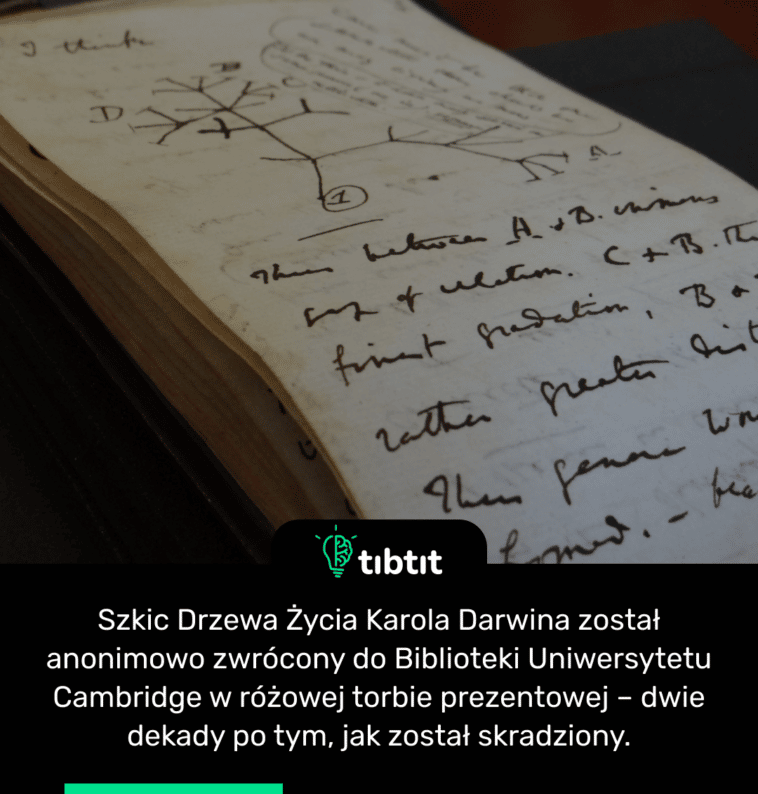 I think
B
C
D
A
1
Thus between A & B. immens
gap of relation. C & B. The
finest gradation, B &
rather greater dist
Thus genera wo
formed. – bea
tıbtıt
Szkic Drzewa Życia Karola Darwina został
anonimowo zwrócony do Biblioteki Uniwersytetu
Cambridge w różowej torbie prezentowej – dwie
dekady po tym, jak został skradziony.